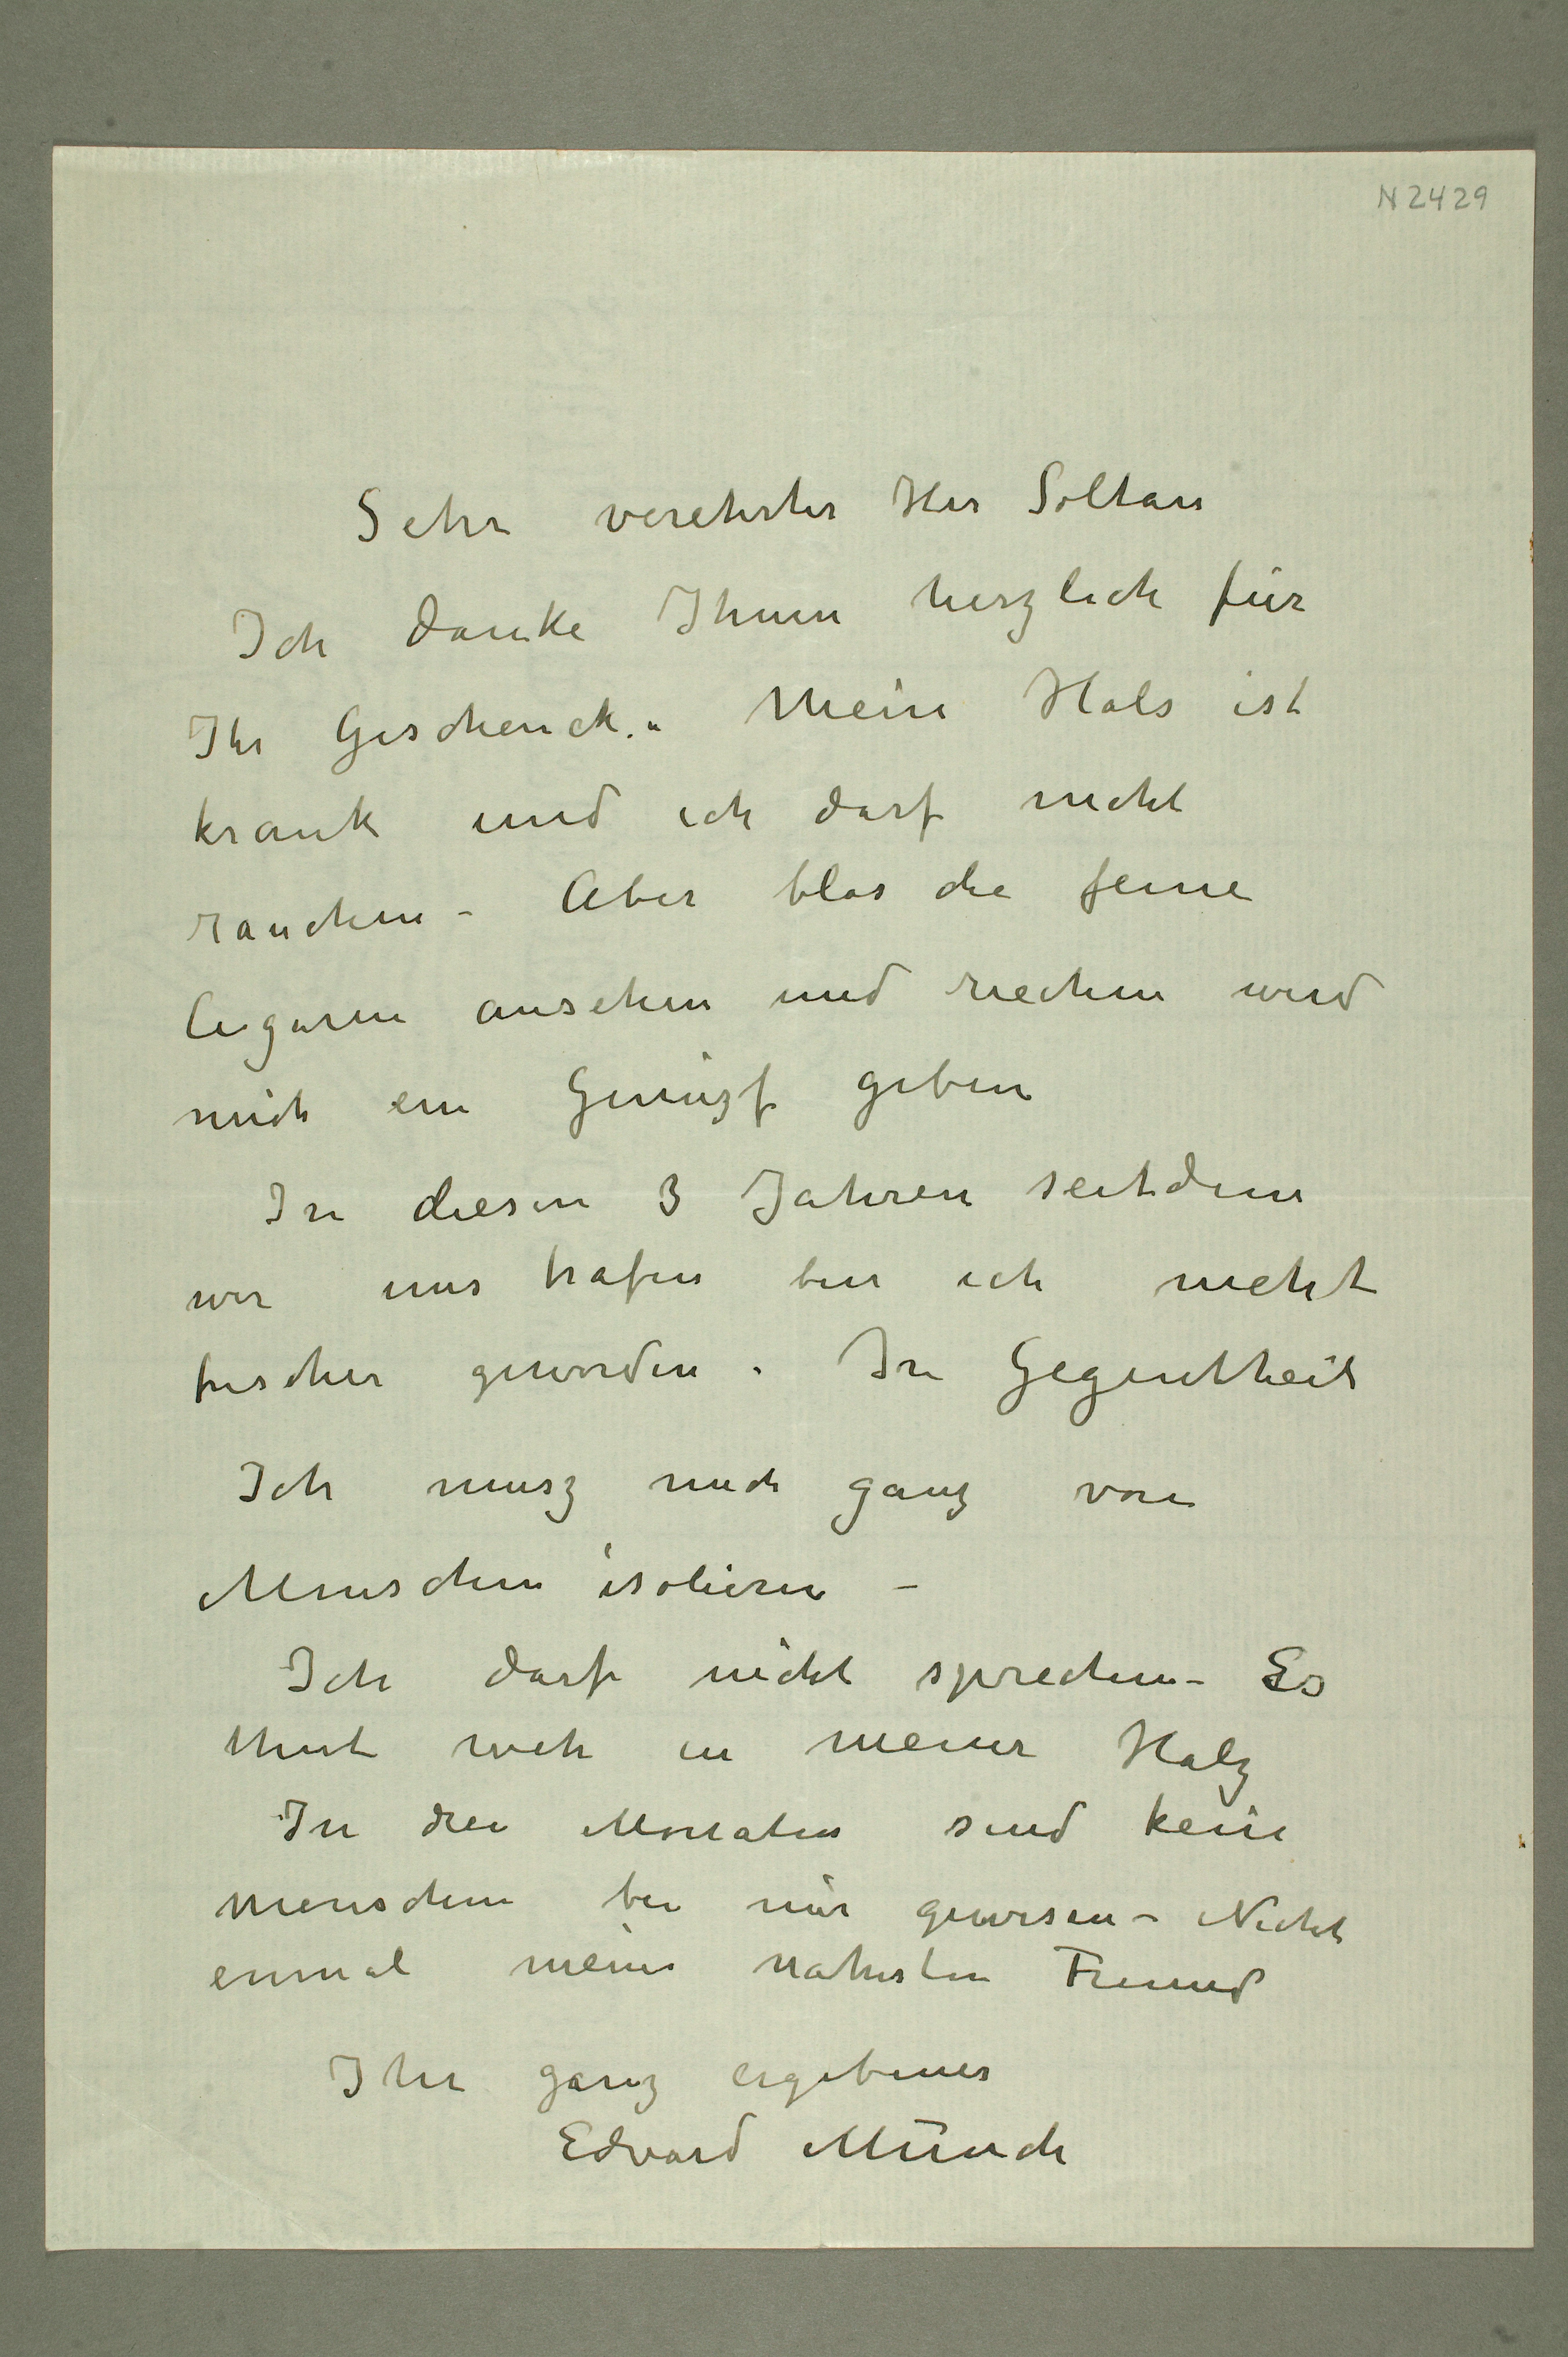 N 2429
Sehr verehrter Her Soltau
Ich danke Ihnen herzlich für
Ihr Geschenck.. Mein Hals ist
krank und ich darf nicht
rauchen – Aber blos die feine
Cigaren ansehen und riechen wird
mich ein Genuzf geben
In diesen 3 Jahren seitdem
wir uns trafen bin ich nicht
frischer geworden. In Gegentheil
Ich musz mich ganz von
Menschen isolieren –
Ich darf nicht sprechen – Es
thut weh in meiner Halz
In drei Monaten sind kein
Menschen bei mir gewesen – Nicht
einmal meine nahesten Freund
Ihr ganz ergebener
Edvard Munch